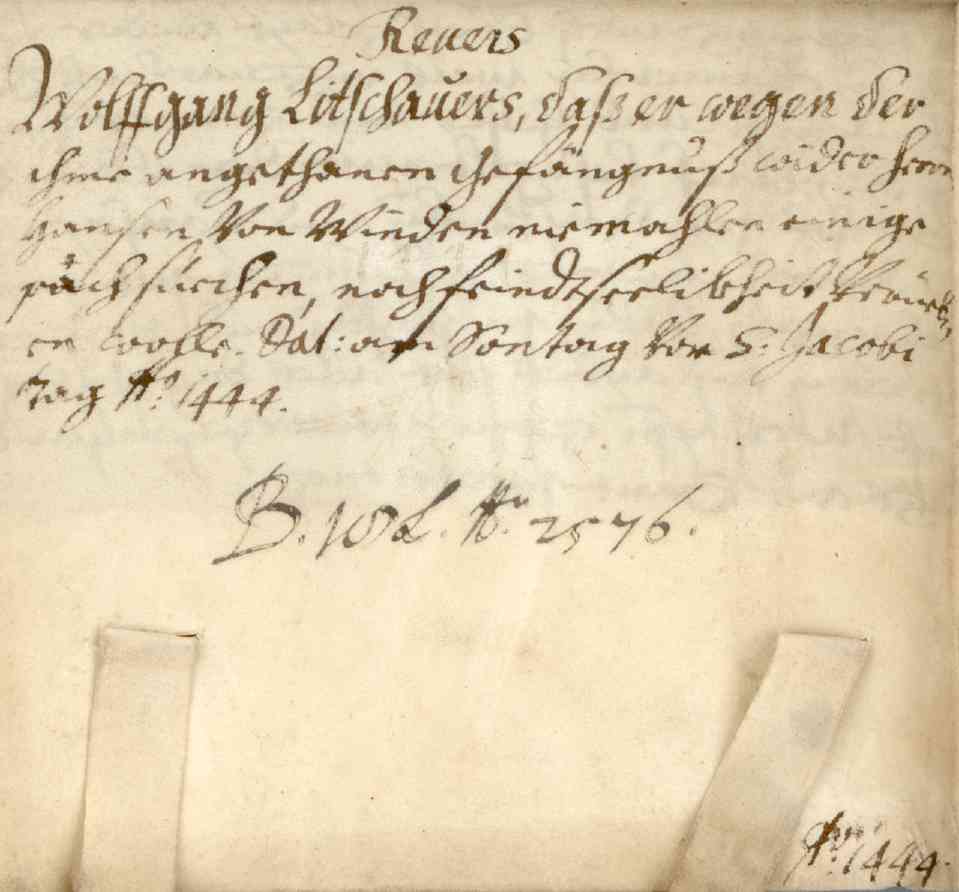 Reuers
Wolffgang Litschauers, daß er wegen der
ihme angethanen Gefängnuß wider Herrn
Hansen Von Winden niemahlen einige
räch suechen, noch feindtseelikheit
en wolle. Dat: am Sontag Vor S: Jacobi
tag Aõ. 1444.
B. 18 L. No. 2576.
Aõ. 1444.